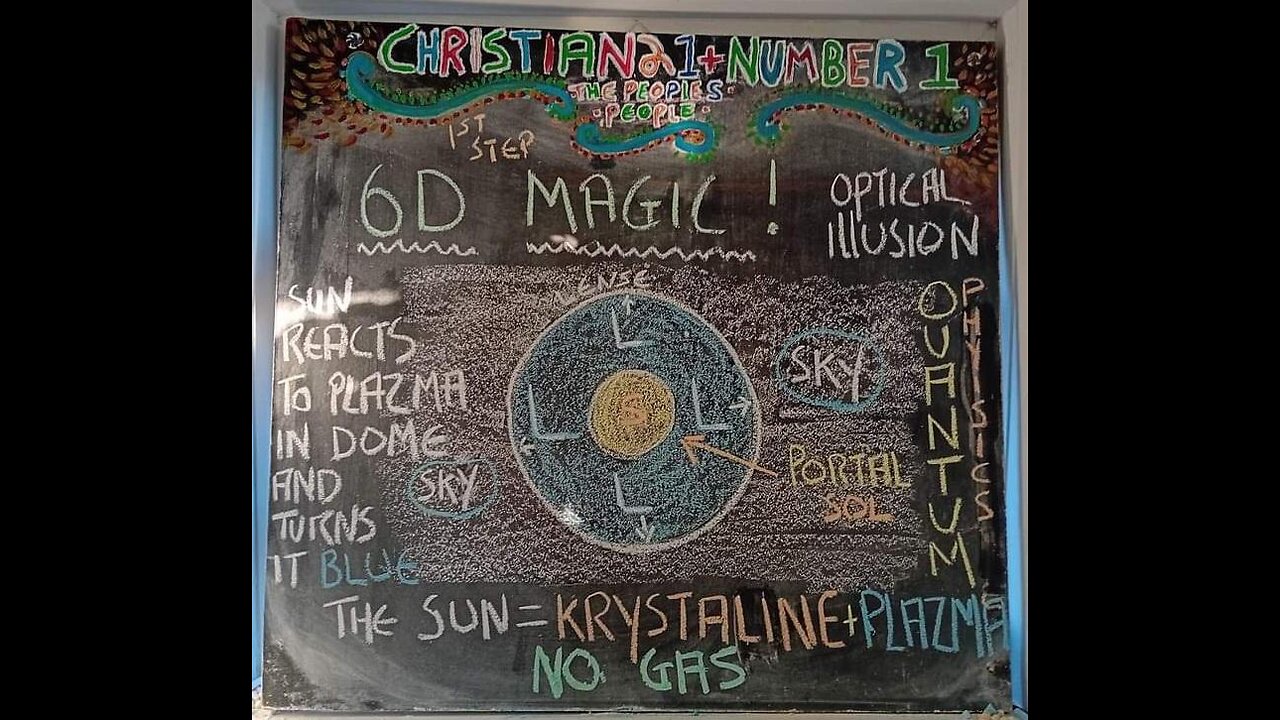 CHRISTIAN 21 + NUMBER 1
·THE PEOPLE'S·
·PEOPLE·
1ST
STEP
6D MAGIC!
OPTICAL
ILLUSION
SUN
REACTS
TO PLAZMA
IN DOME
AND
TURNS
IT BLUE
SKY
LENSE
L
L
S
L
L
SKY
PORTAL
SOL
QUANTUM
PHYISICS
THE SUN = KRYSTALINE + PLAZMA
NO GAS